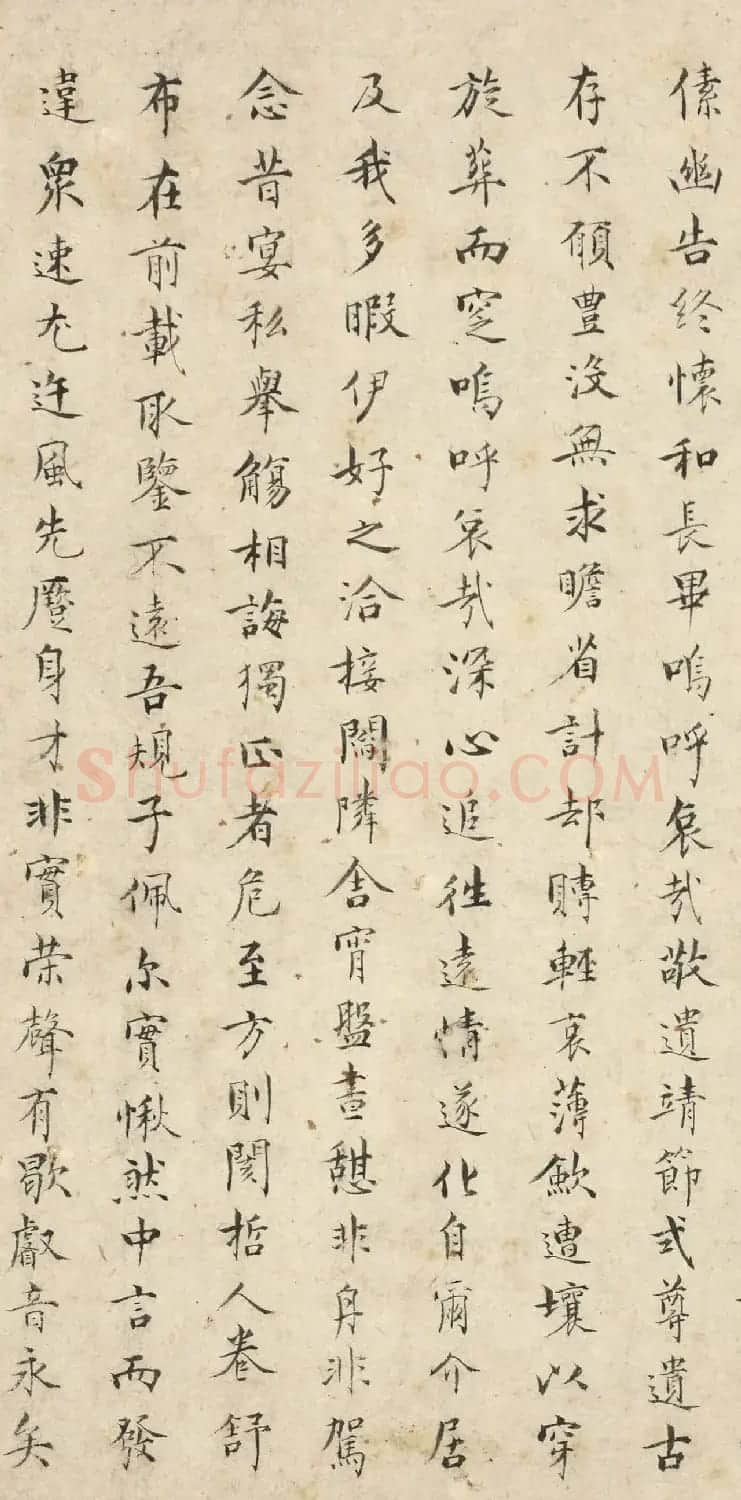 傃幽告終懷和長畢嗚呼哀哉敬遺靖節式尊遺古
存不願豊没無求贍省計却賻輕哀薄斂遭壤以穿
旋葬而窆嗚呼哀哉深心追往遠情逐化自爾介居
及我多暇伊好之洽接閻隣舍宵盤晝憇非舟非駕
念昔宴私舉觴相誨獨正者危至方則閡哲人卷舒
布在前載取鑒不遠吾規子佩尔實愀然中言而發
違衆速尤迕風先蹷身才非實荣聲有歇叡音永矣
Shufaziliao.COM